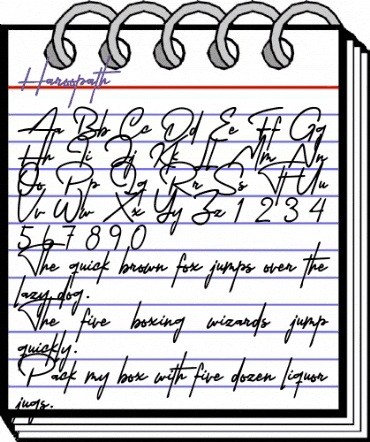 Haroopath
Aa Bb Cc Dd Ee Ff Gg
Hh Ii Jj Kk Ll Mm Nn
Oo Pp Qq Rr Ss Tt Uu
Vv Ww Xx Yy Zz 1 2 3 4
5 6 7 8 9 0
The quick brown fox jumps over the
lazy dog.
The five boxing wizards jump
quickly.
Pack my box with five dozen liquor
jugs.